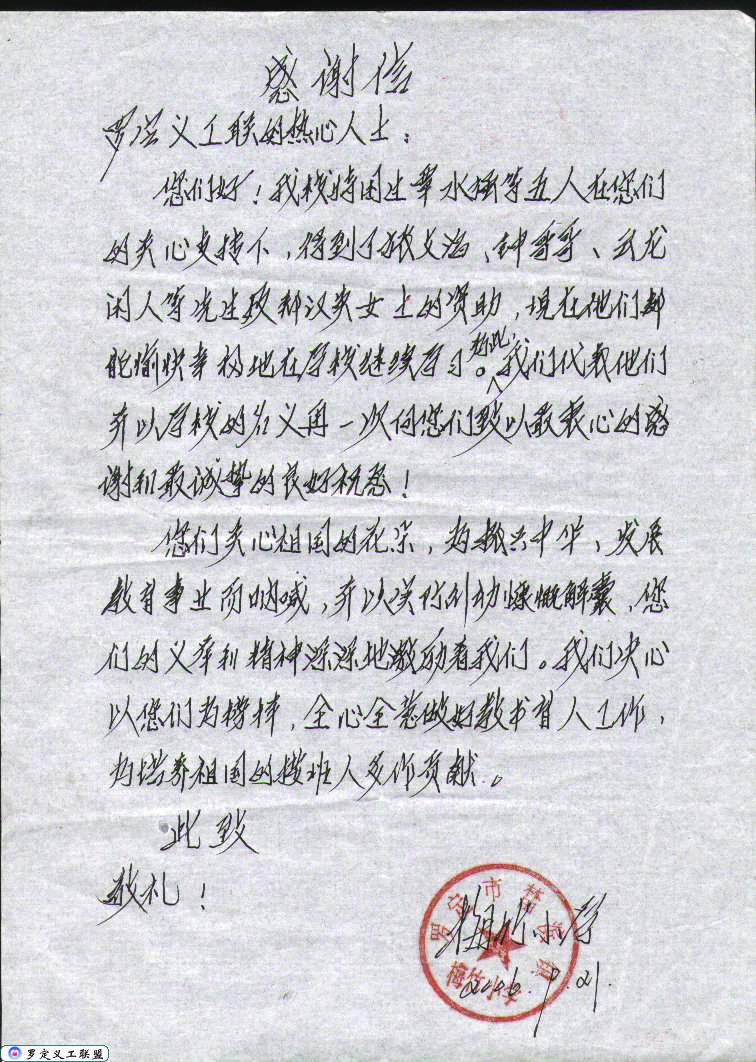 感谢信
罗定义工联的热心人士：
您们好！我校特困生 水 等五人在您们
的关心支持下，得到了 父海、钟哥哥、云龙
闲人等先生及郑汉英女士的资助，现在他们都
能愉快幸福地在学校继续学习。为此，我们代表他们
并以学校的名义再一次向您们致以最衷心的感
谢和最诚挚的良好祝愿！
您们关心祖国的花朵，为振兴中华、发展
教育事业而呐喊，并以实际行动慷慨解囊，您
们的义举和精神深深地激励着我们。我们决心
以您们为榜样，全心全意做好教书育人工作，
为培养祖国的接班人多作贡献。
此致
敬礼！
罗定市 镇
梅竹小学
梅竹小学
2006.9.21.
罗定义工联盟